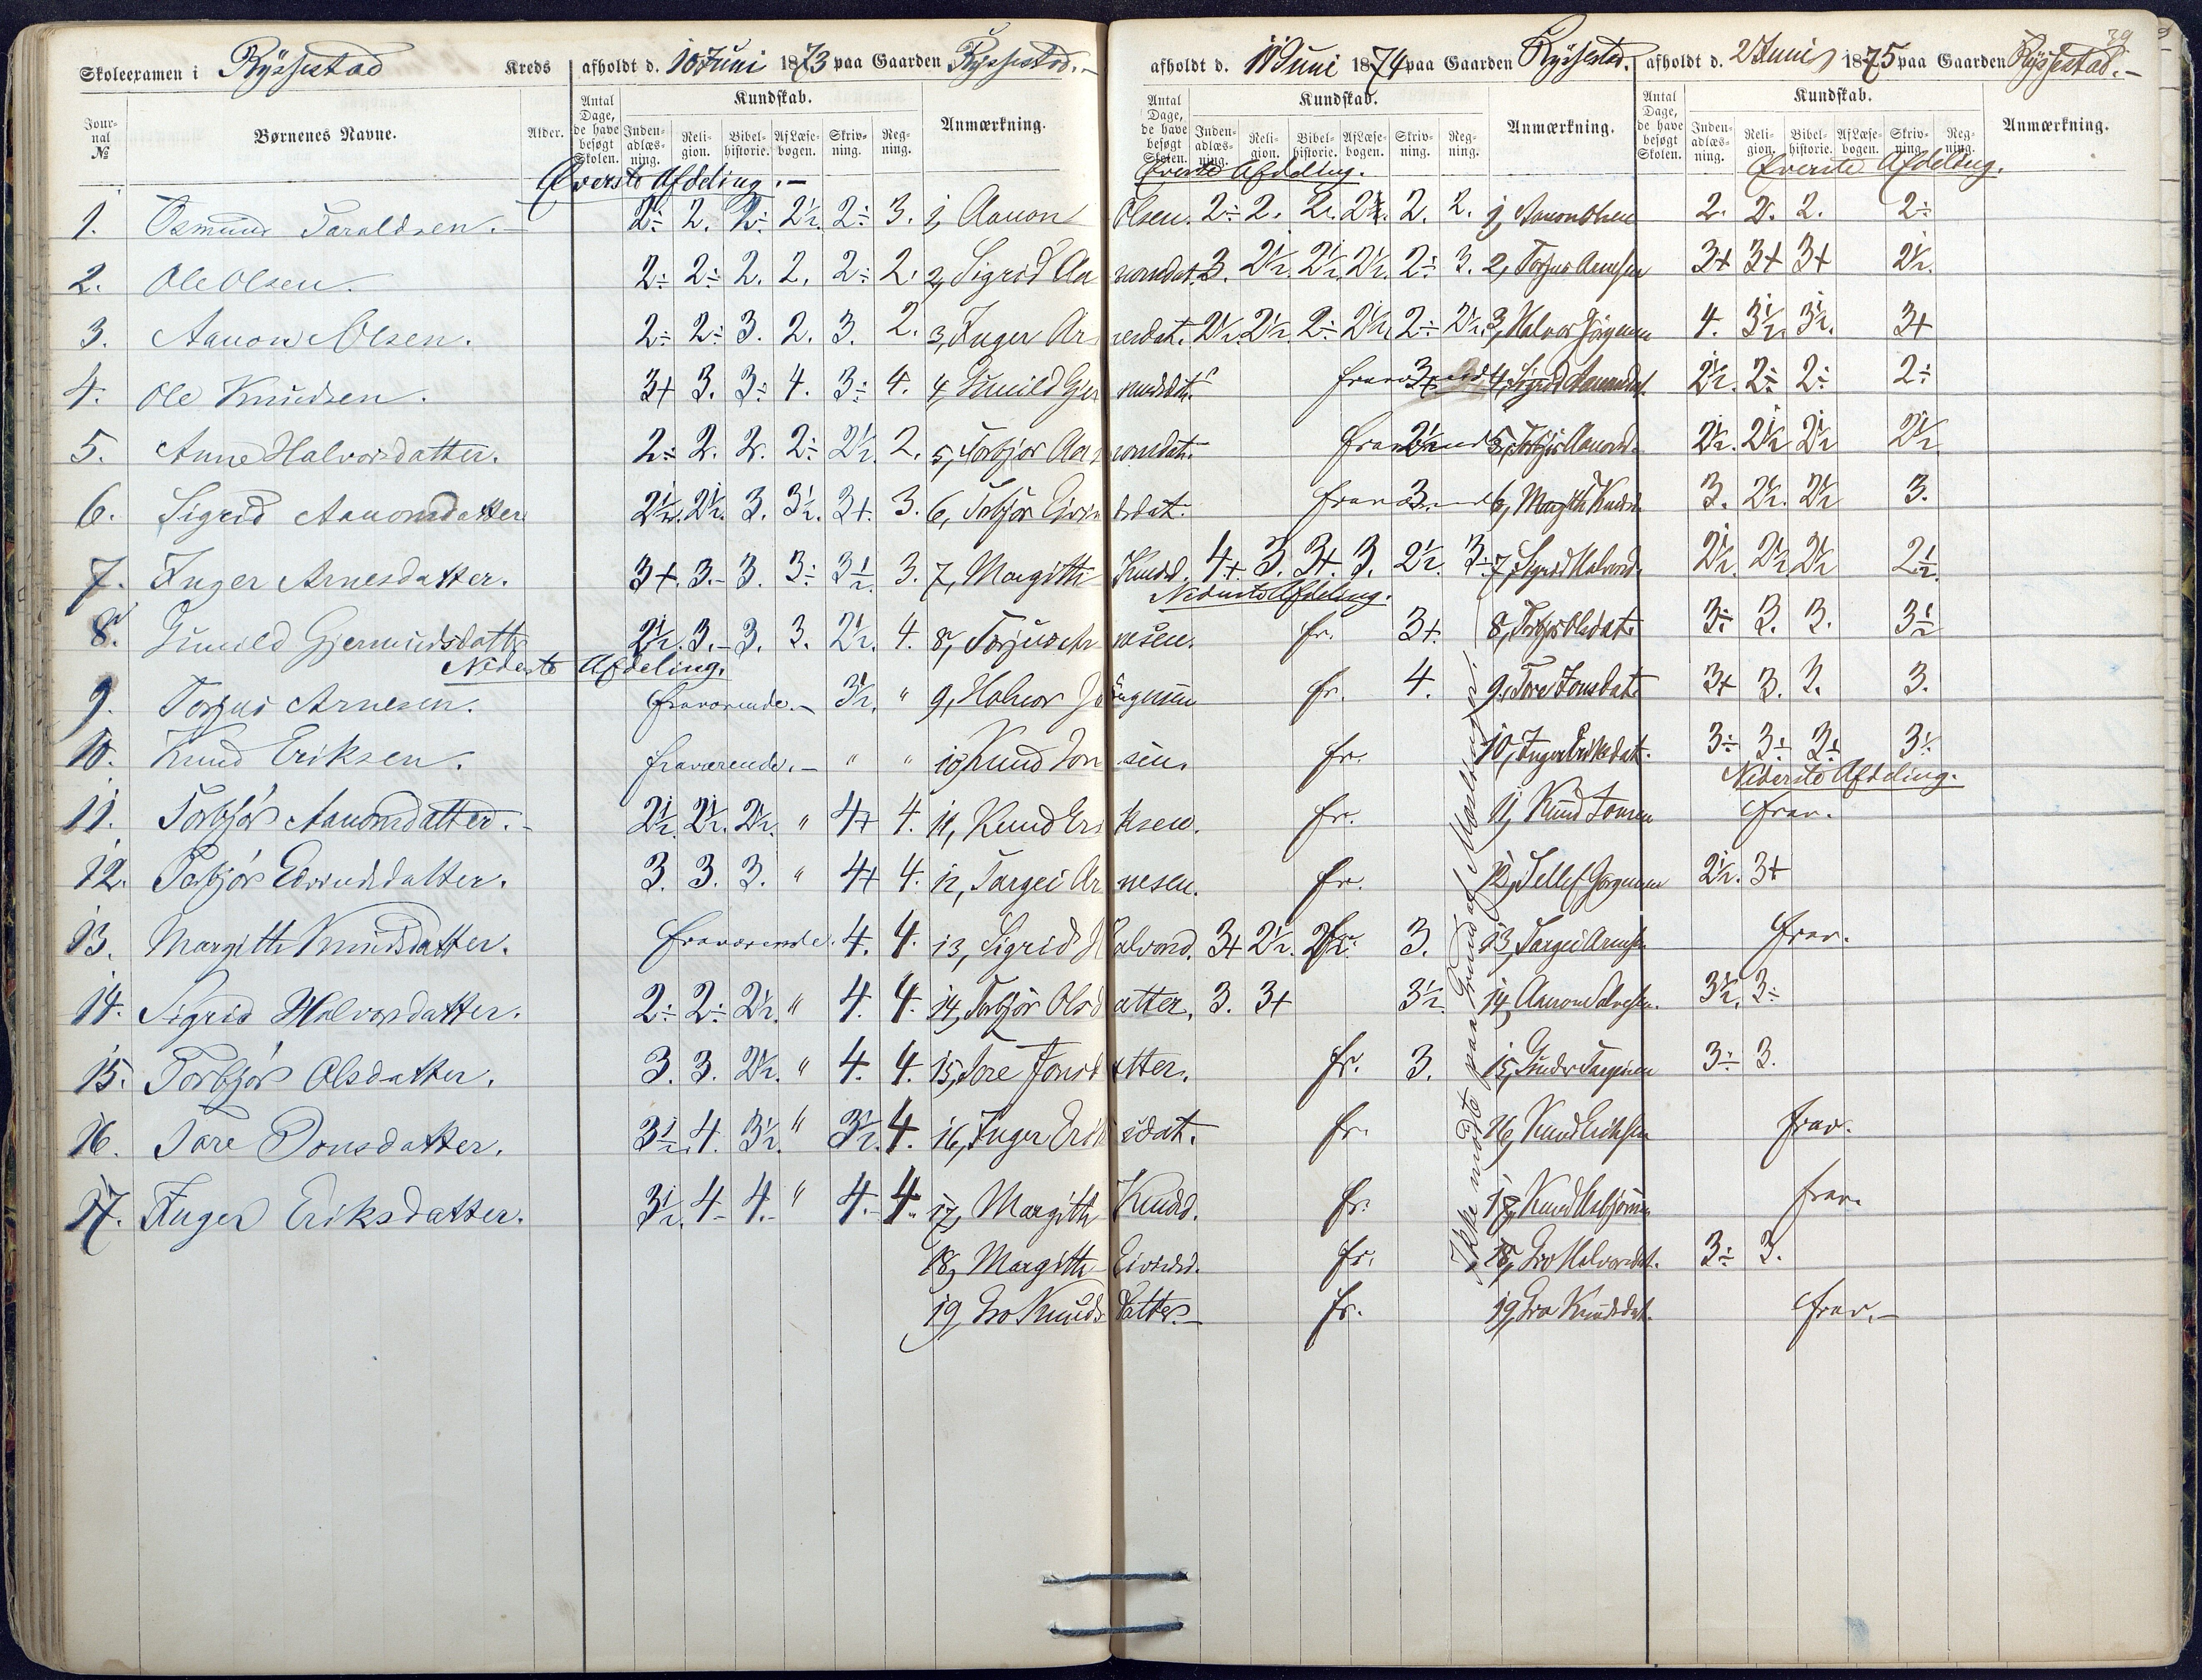 39
Skoleexamen i Ryssestad Kreds afholdt d. 10 Juni 1873 paa Gaarden Ryssestad.-
Jour-nal No Børnenes Navne. Alder. Antal Dage, de have besøgt Skolen. Kundskab. Inden-adlæs-ning. Reli-gion. Bibel-historie. Af Læse-bogen. Skriv-ning. Reg-ning. Anmærkning.
Øverste Afdeling.-
1. Osmund Taraldsen. 2÷ 2. 2÷ 2½. 2÷ 3.
2. Ole Olsen. 2÷ 2÷ 2. 2. 2÷ 2.
3. Aanon Olsen. 2÷ 2÷ 3. 2. 3. 2.
4. Ole Knudsen. 3+ 3. 3÷ 4. 3÷ 4.
5. Anne Halvorsdatter. 2÷ 2. 2. 2÷ 2½. 2.
6. Sigrid Aanonsdatter 2½. 2½. 3. 3½. 3+. 3.
7. Inger Arnesdatter. 3+. 3.- 3. 3÷ 3½. 3.
8. Gunild Gjermundsdatter 2½. 3.- 3. 3. 2½. 4.
Nederste Afdeling.
9. Torjus Arnesen. fraværende.- 3½. "
10. Knud Eriksen. fraværende.- " "
11. Torbjør Aanonsdatter.- 2½. 2½. 2½. " 4+ 4.
12. Torbjør Eivindsdatter. 3. 3. 3. " 4+ 4.
13. Margith Knudsdatter. fraværende. 4. 4.
14. Sigrid Halvorsdatter. 2÷ 2÷ 2½. " 4. 4.
15. Torbjør Olsdatter. 3. 3. 2½. " 4. 4.
16. Tore Jonsdatter. 3½. 4. 3½. " 3½. 4.
17. Inger Eriksdatter. 3½. 4- 4.- " 4.- 4.
afholdt d. 11 Juni 1874 paa Gaarden Ryssestad.
Antal Dage, de have besøgt Skolen. Kundskab. Inden-adlæs-ning. Reli-gion. Bibel-historie. Af Læse-bogen. Skriv-ning. Reg-ning. Anmærkning.
Øverste Afdeling.
1, Aanon Olsen. 2÷ 2. 2. 2½. 2. 2.
2, Sigrid Aanonsdat. 3. 2½. 2½. 2½. 2÷ 3.
3, Inger Arnesdat. 2½. 2½. 2÷ 2½. 2÷ 2½.
4, Gunild Gjermundsdat. 3+
5, Torbjør Aanonsdat. 2½
6, Torbjør Eivindsdat. 3.
7, Margith Knudsd. 4+. 3. 3+. 3. 2½. 3÷
Nederste Afdeling.
8, Torjus Arnesen. fr. 3+.
9, Halvor Jørgensen fr. 4.
10, Knud Jonsen. fr.
11, Knud Eriksen. fr.
12, Targei Arnesen. fr.
13, Sigrid Halvorsd. 3+ 2½. 2½. 3.
14, Torbjør Olsdatter. 3. 3+ 3½.
15, Tore Jonsdatter. fr. 3.
16, Inger Eriksdat. fr.
17, Margith Knudsd. fr.
18, Margith Eivindsd. fr.
19, Gro Knudsdatter.- fr.
Ikke mødte paa Grund af Mæslinger.
afholdt d. 2 Juni 1875 paa Gaarden Ryssestad.-
Antal Dage, de have besøgt Skolen. Kundskab. Inden-adlæs-ning. Reli-gion. Bibel-historie. Af Læse-bogen. Skriv-ning. Reg-ning. Anmærkning.
Øverste Afdeling.
1, Aanon Olsen 2. 2. 2. 2÷
2, Torjus Arnesen 3+ 3+ 3+ 2½.
3, Halvor Jørgensen 4. 3½. 3½. 3+
4, Sigrid Aanonsdat. 2½. 2÷ 2÷ 2÷
5, Torbjør Aanonsd. 2½. 2½ 2½ 2½
6, Margith Knudsd. 3. 2½. 2½ 3.
7, Sigrid Halvorsd. 2½. 2½ 2½ 2½.
8, Torbjør Olsdat. 3÷ 3. 3. 3½
9, Tore Jonsdat. 3+ 3. 3. 3.
10, Inger Eriksdat. 3÷ 3÷ 3÷ 3½
Nederste Afdeling.
11, Knud Jonsen frav.
12, Tellef Jørgensen 2½. 3+
13, Targei Arnesen frav.
14, Aanon 3½. 3÷
15, Gunder Targeisen 3÷ 3.
16, Knud Eriksen frav.
17, Knud Asbjørnsen frav.
18, Gro Halvorsdat. 3÷ 3.
19, Gro Knudsdat. frav.-